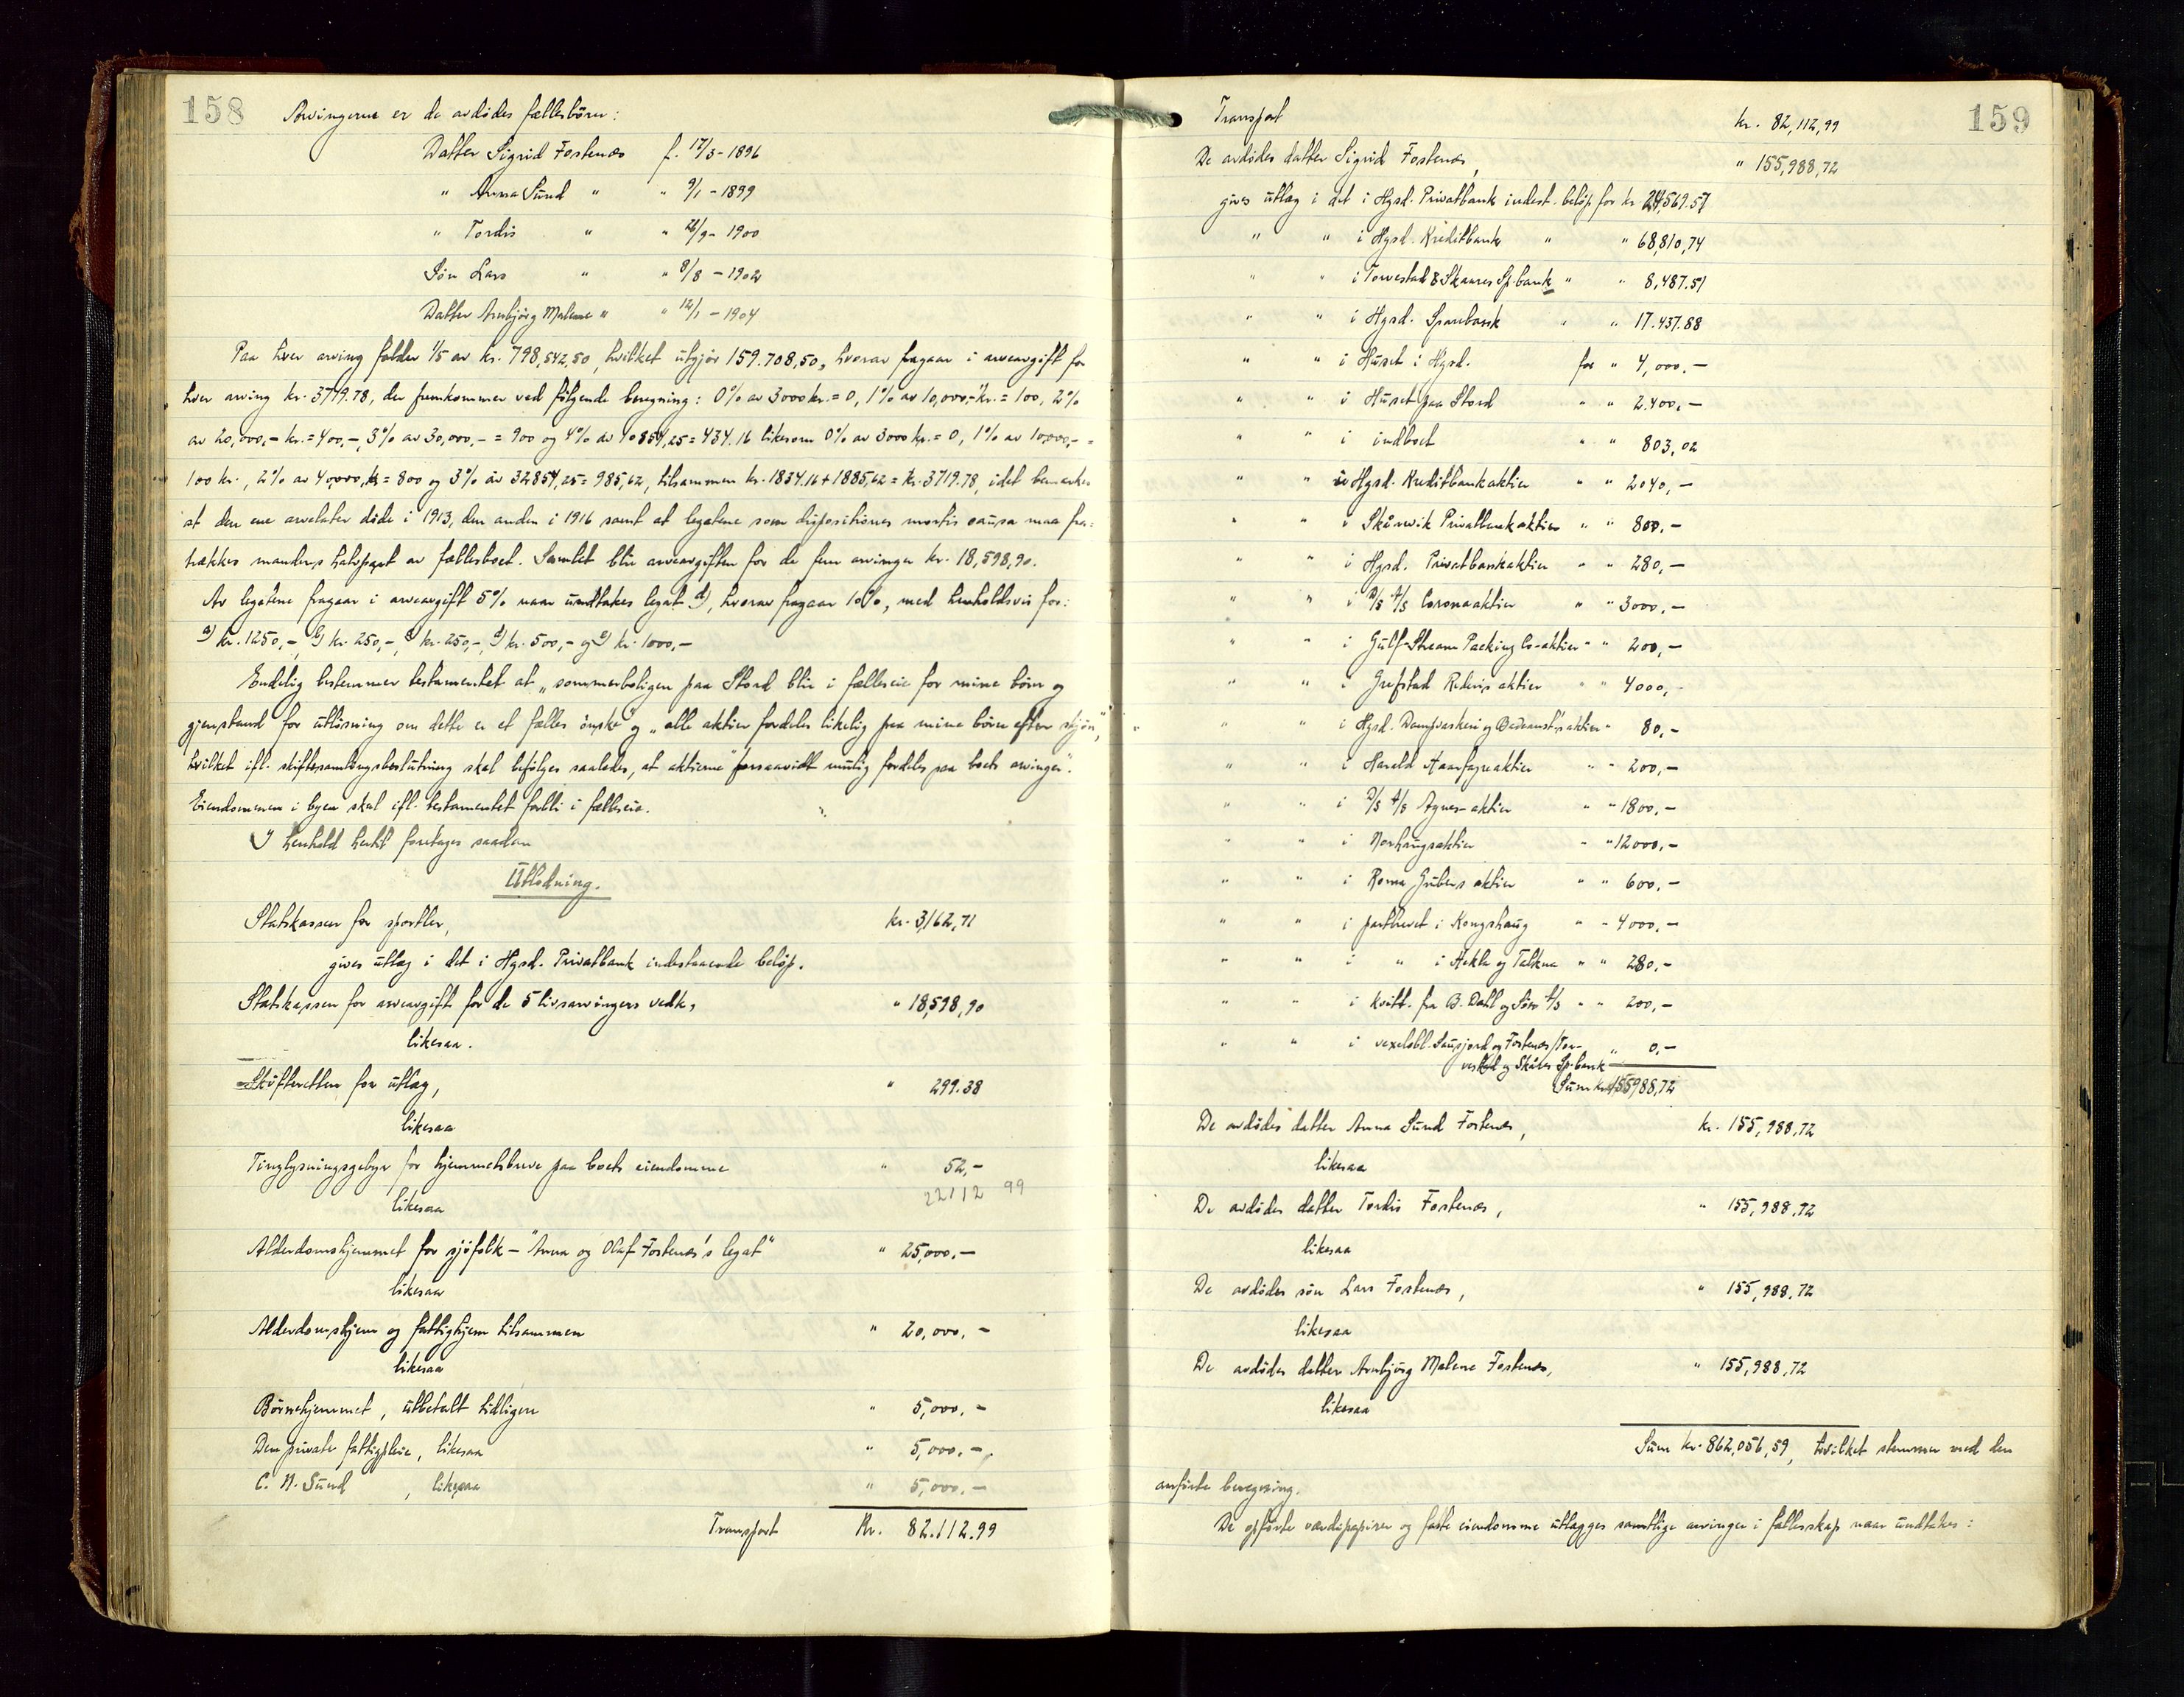 158
Arvingerne er de avdödes fællesbörn:
Datter Sigrid Fostenæs f. 17/3-1896
" Anna Sund " " 9/1-1899
" Tordis " " 26/9-1900
Sön Lars " " 8/8-1902
Datter Arnbjörg Malene " " 12/1-1904
Paa hver arving falder 1/5 av kr. 798,542,50, hvilket utgjör 159.708,50, hvorav fragaar i arveavgift for
hver arving kr. 3719.78, der fremkommer ved fölgende beregning: 0% av 3000 kr. = 0, 1% av 10,000,- kr. = 100, 2%
av 20,000,- kr. = 400,-, 3% av 30,000,- = 900 og 4% av 10854,25 = 434.16 likesom 0% av 3000 kr. = 0, 1% av 10,000,- =
100 kr., 2% av 40,000,kr = 800 og 3% av 32854,25 = 985,62, tilsammen kr. 1834.16 + 1885,62 = kr. 3719.78, idet bemerkes
at den ene arvelater döde i 1913, den anden i 1916 samt at legatene som dispositiones mortis causa maa fra-
trækkes mandens halvpart av fællesboet. Samlet blir arveavgiften for de fem arvinger kr. 18,598,90.
Av legatene fragaar i arveavgift 5% naar undtakes legat d), hvorav fragaar 10%, med henholdsvis for:
a) kr. 1250,-, b) kr. 250,-, c) kr. 250,-, d) kr. 500,- og e) kr. 1000,-
Endelig bestemmer testamentet at „sommerboligen paa Stord blir i fælleseie for mine börn og
gjenstand for utlösning om dette er et fælles önske" og „alle aktier fordeles likelig paa mine börn efter skjön",
hvilket ifl. skiftesamlingsbeslutning skal befölges saaledes, at aktierne "forsaavidt mulig fordeles paa boets arvinger".
Eiendommen i byen skal ifl. testamentet forbli i fælleseie.
I henhold hertil foretages saadan
Utlodning.
Statskassen for sportler, kr. 3,162,71
gives utlæg i det i Hgsd. Privatbank indestaaende belöp.
Statskassen for arveavgift for de 5 livsarvingers vedk, " 18,598,90
likesaa.
Skifteretten for utlæg, " 299.38
likesaa
Tinglysningsgebyr for hjemmelsbreve paa boets eiendomme " 52,-
22112 99
likesaa
Alderdomshjemmet for sjöfolk - "Anna og Olaf Fostenæs's legat" " 25,000.-
likesaa
Alderdomshjem og fattighjem tilsammen " 20,000.-
likesaa
Börnehjemmet, utbetalt tidligere " 5,000.-
Den private fattigpleie, likesaa " 5,000.-
C. N. Sund , likesaa " 5,000.-
Transport Kr. 82.112.99
159
Transport kr. 82,112,99
De avdödes datter Sigrid Fostenæs, " 155,988,72
gives utlæg i det i Hgsd. Privatbank indest. belöp for kr. 24,569.57
" " i Hgsd. Kreditbank " " 68,810,74
" " i Torvestad & Skaares Sp.bank " " 8,487.51
" " i Hgsd. Sparebank " " 17.437.88
" " i Huset i Hgsd. for " 4,000.-
" " i Huset paa Stord " " 2.400,-
" " i indboet " " 803,02
" " i Hgsd. Kreditbankaktier " " 2040,-
" " i Skånevik Privatbankaktier " " 800,-
" " i Hgsd. Privatbankaktier " " 280,-
" " i D/S A/S Coronaaktier " " 3000,-
" " i Gulf-Stream Packing Co-aktier " " 200,-
" " i Grefstad Rederis aktier " " 4000,-
" " i Hgsd. Dampvaskeri og Badeanst's aktier " 80,-
" " i Harald Haarfagreaktier " " 200,-
" " i D/S A/S Agnes-aktier " " 1800,-
" " i Norhaugsaktier " " 12000,-
" " i Roma Grubers aktier " " 600,-
" " i partbrevet i Kongshaug " " 4000,-
" " i " i Hekla og Talkna " " 280,-
" " i kvitt. fra B. Dahl og Sön A/S " " 200,-
" " i vexelobl. Sausjord og Fostenæs/Tor- " 0,-
vestad og Skåres Sp.bank
Sum kr. 155988,72
De avdödes datter Anna Sund Fostenæs, kr. 155,988,72
likesaa
De avdödes datter Tordis Fostenæs, " 155,988,72
likesaa
De avdödes sön Lars Fostenæs, " 155,988,72
likesaa
De avdödes datter Arnbjörg Malene Fostenæs, " 155,988,72
likesaa
Sum kr. 862,056,59, hvilket stemmer med den
anförte beregning.
De opförte værdipapirer og faste eiendomme utlægges samtlige arvinger i fællesskap naar undtakes: